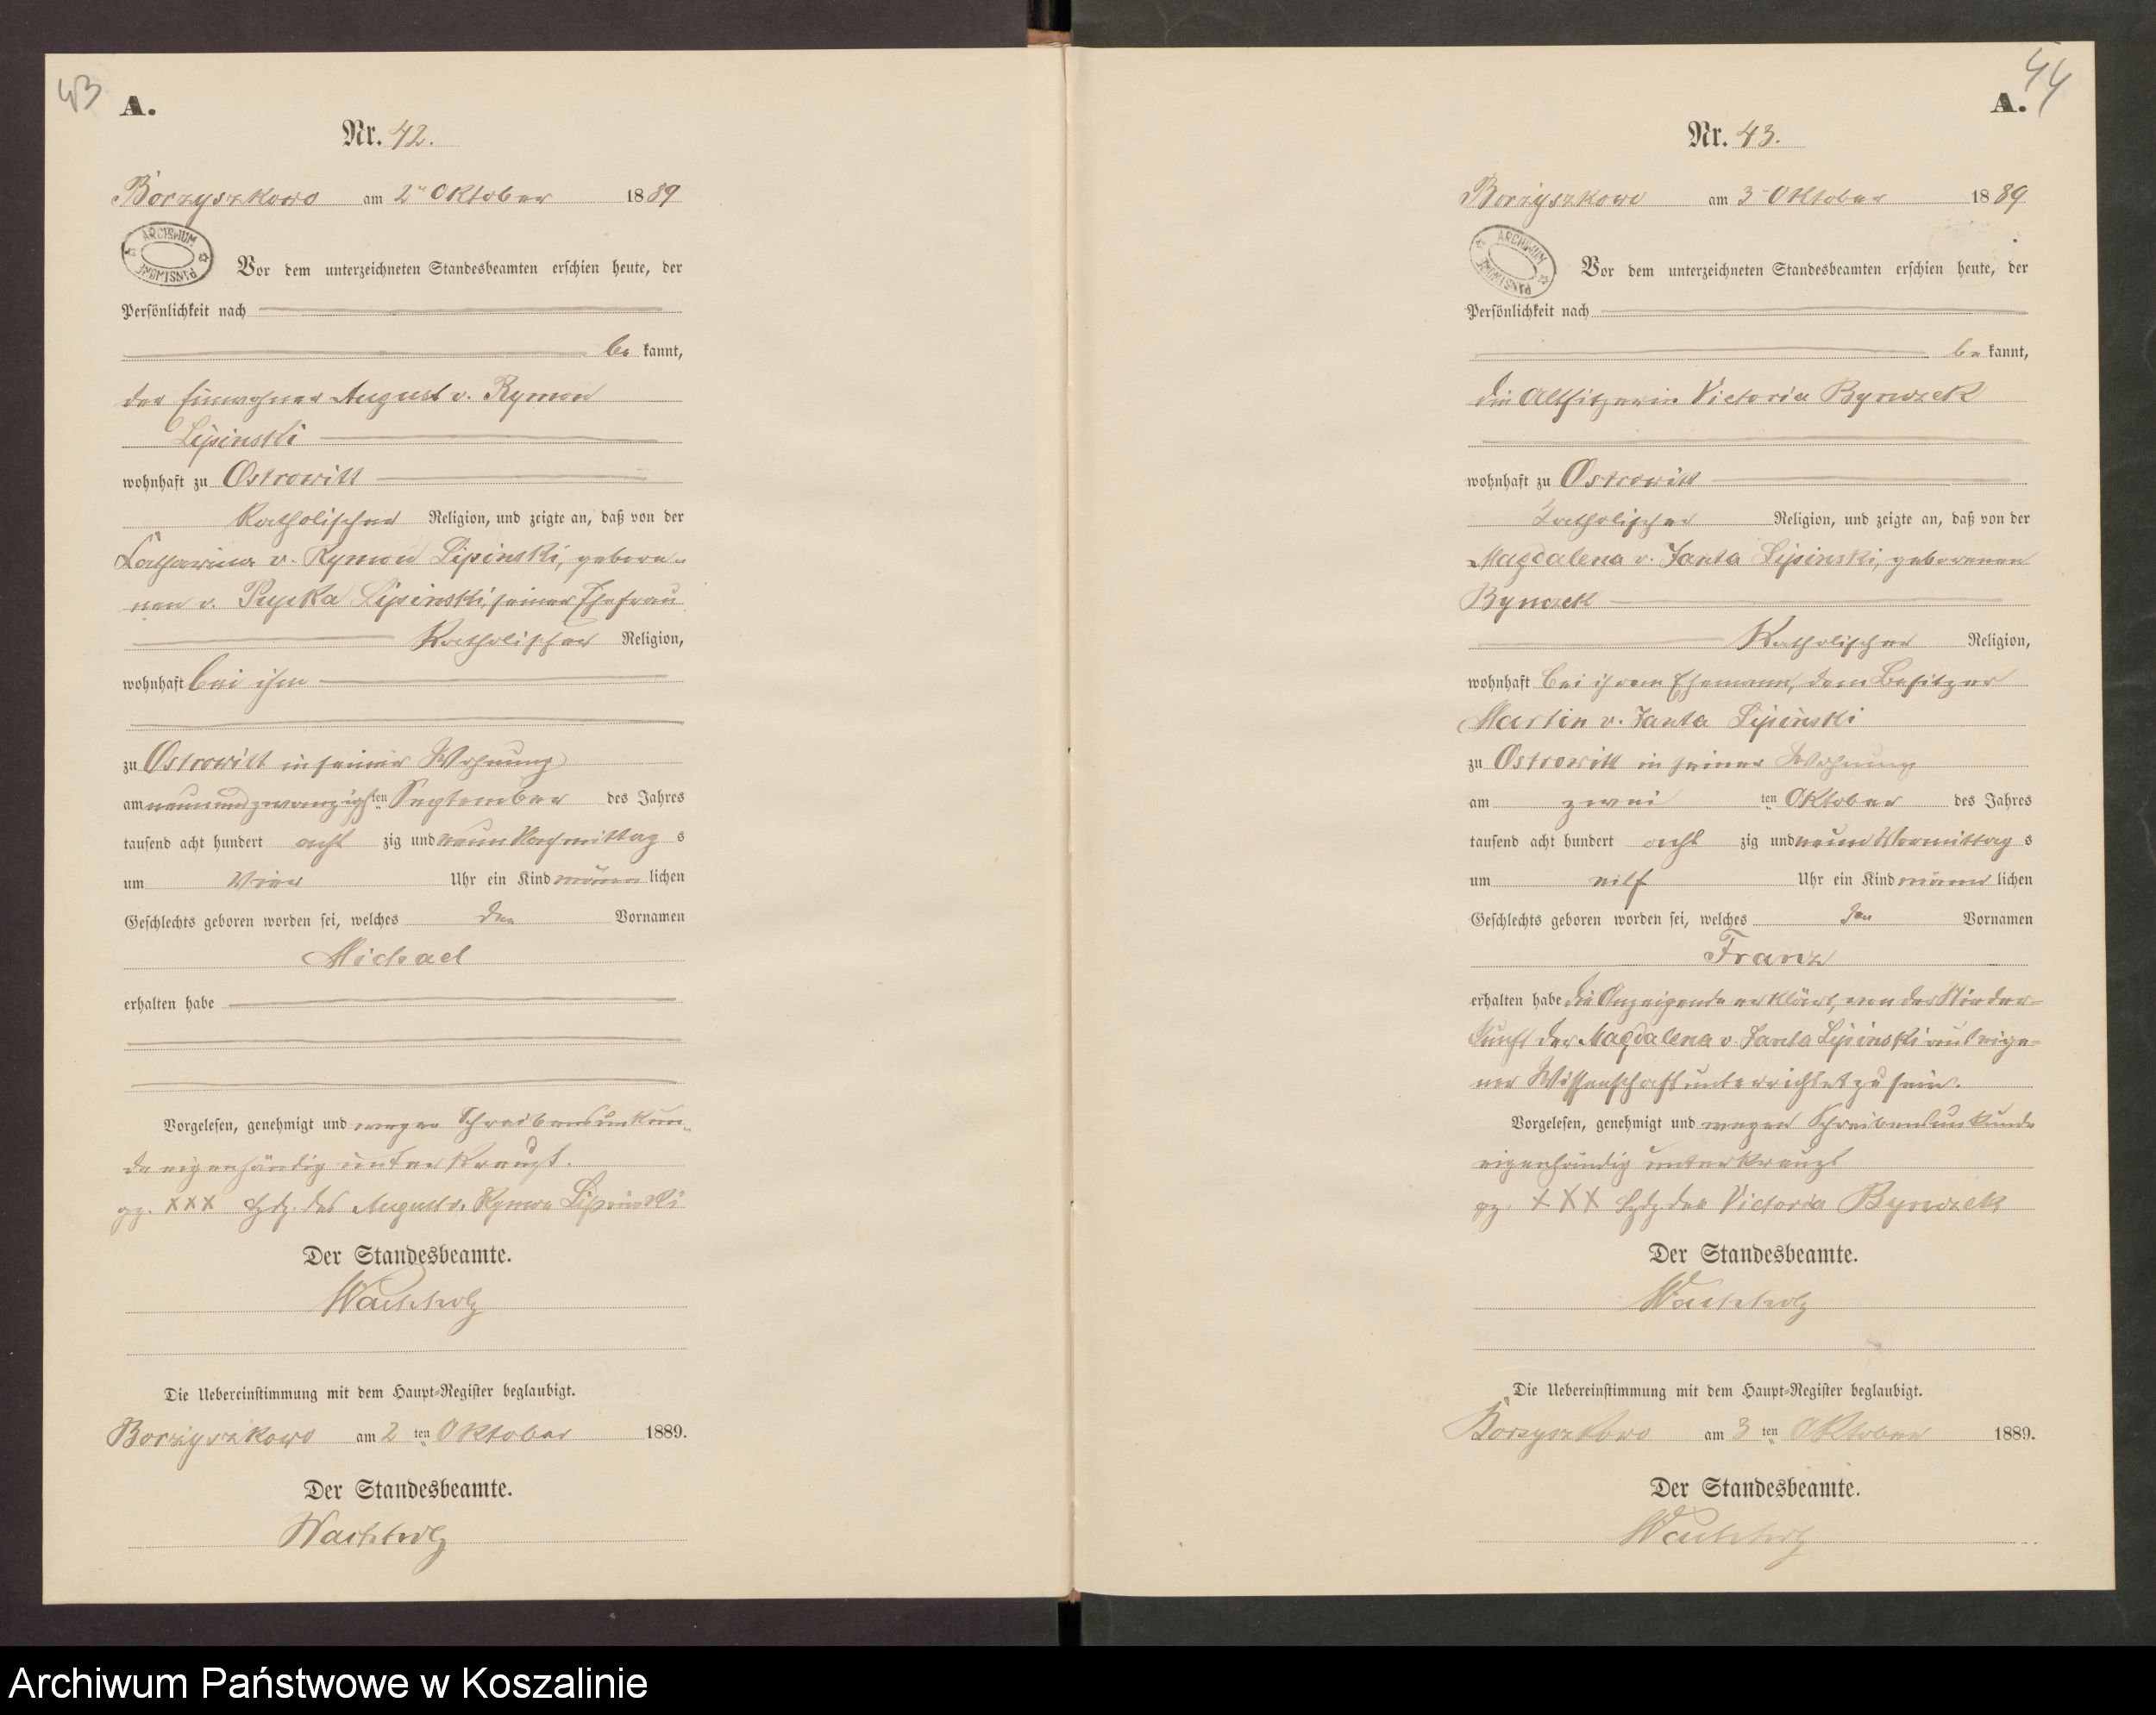 43
A.
Nr. 42.
Borzyszkowo am 2ten Oktober 1889
ARCHIWUM PAŃSTWOWE
Vor dem unterzeichneten Standesbeamten erschien heute, der
Persönlichkeit nach
be kannt,
der Einwohner August v. Rymon
Lipinski
wohnhaft zu Ostrowitt
Katholischer Religion, und zeigte an, daß von der
Catharina v. Rymon Lipinski, gebore-
nen v. Lipinski, seiner Ehefrau
Katholischer Religion,
wohnhaft bei ihm
zu Ostrowitt in seiner Wohnung
am neunundzwanzigsten September des Jahres
tausend acht hundert acht zig und neun Nachmittag s
um Vier Uhr ein Kind männ lichen
Geschlechts geboren worden sei, welches den Vornamen
Michael
erhalten habe
Vorgelesen, genehmigt und wegen Schreibensunkun-
de eigenhändig unterkreuzt.
gz. XXX Hdz. des August v. Rymon Lipinski
Der Standesbeamte.
Wachholz
Die Uebereinstimmung mit dem Haupt-Register beglaubigt.
Borzyszkowo am 2 ten Oktober 1889.
Der Standesbeamte.
Wachholz
44
A.
Nr. 43.
Borzyszkowo am 3 Oktober 1889
ARCHIWUM PAŃSTWOWE
Vor dem unterzeichneten Standesbeamten erschien heute, der
Persönlichkeit nach
be kannt,
die Altsitzerin Victoria Bynczek
wohnhaft zu Ostrowitt
Katholischer Religion, und zeigte an, daß von der
Magdalena v. Janta Lipinski, geborenen
Bynczek
Katholischer Religion,
wohnhaft bei ihrem Ehemann, dem Besitzer
Martin v. Janta Lipinski
zu Ostrowitt in seiner Wohnung
am zwei ten Oktober des Jahres
tausend acht hundert acht zig und neun Vormittag s
um elf Uhr ein Kind männ lichen
Geschlechts geboren worden sei, welches den Vornamen
Franz
erhalten habe die Anzeigende erklärt, von der Nieder-
kunft der Magdalena v. Janta Lipinski aus eige-
ner Wissenschaft unterrichtet zu sein.
Vorgelesen, genehmigt und wegen Schreibensunkunde
eigenhändig unterkreuzt
gz. XXX Hdz der Victoria Bynczek
Der Standesbeamte.
Wachholz
Die Uebereinstimmung mit dem Haupt-Register beglaubigt.
Borzyszkowo am 3 ten Oktober 1889.
Der Standesbeamte.
Wachholz
Archiwum Państwowe w Koszalinie